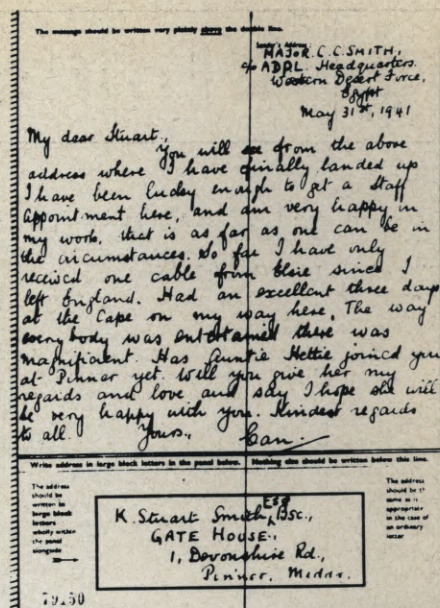 The message should be written very plainly above the double line.
Sender's Address
MAJOR. C. C. SMITH,
c/o ADPL. Headquarters.
Western Desert Force,
Egypt
May 31st, 1941
My dear Stuart,
You will see from the above
address where I have finally landed up
I have been lucky enough to get a Staff
Appointment here, and am very happy in
my work, that is as far as one can be in
the circumstances. So far I have only
received one cable from Elsie since I
left England. Had an excellent three days
at the Cape on my way here, The way
everybody was entertained there was
magnificent. Has Auntie Hettie joined you
at Pinner yet. Will you give her my
regards and love and say I hope she will
be very happy with you. Kindest regards
to all. Yours,
Write address in large block letters in the panel below. Nothing else should be written below this line.
The address
should be
written in
large block
letters
wholly within
the panel
alongside
ESQ
K. Stuart Smith, BSc.,
GATE HOUSE.,
1, Devonshire Rd.,
Pinner, Middx.
The address
should be the
same as is
appropriate
in the case of
an ordinary
letter